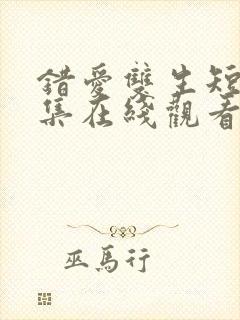 錯愛雙生短
集在綫觀看
巫馬行